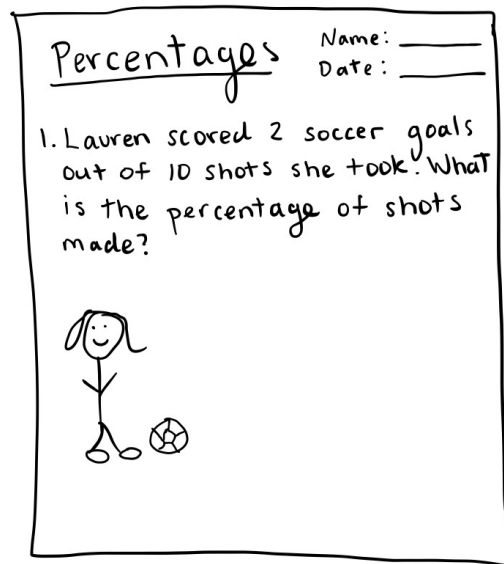 Percentages
Name: ________
Date: ________
1. Lauren scored 2 soccer goals
out of 10 shots she took. What
is the percentage of shots
made?